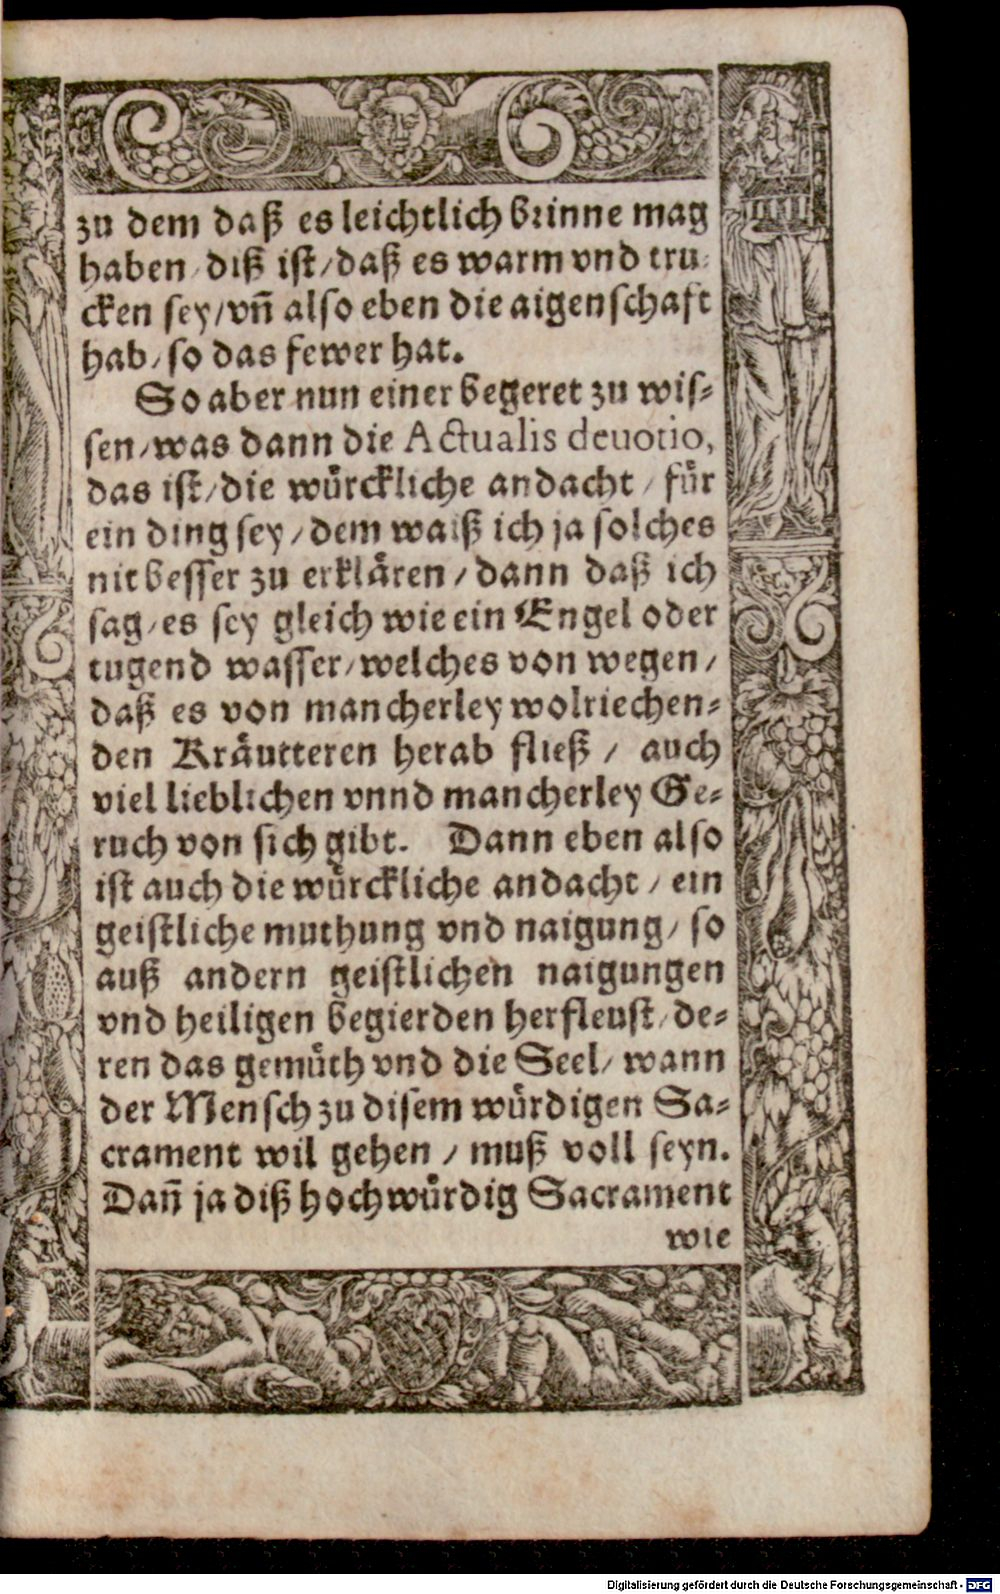 zu dem daß es leichtlich brinne mag
haben / diß ist / daß es warm vnd tru-
cken sey / vñ also eben die aigenschaft
hab / so das fewer hat.
So aber nun einer begeret zu wis-
sen / was dann die Actualis deuotio,
das ist / die würckliche andacht / für
ein ding sey / dem waiß ich ja solches
nit besser zu erklären / dann daß ich
sag / es sey gleich wie ein Engel oder
tugend wasser / welches von wegen /
daß es von mancherley wolriechen-
den Kräutteren herab fließ / auch
viel lieblichen vnnd mancherley Ge-
ruch von sich gibt. Dann eben also
ist auch die würckliche andacht / ein
geistliche muthung vnd naigung / so
auß andern geistlichen naigungen
vnd heiligen begierden herfleust / de-
ren das gemüth vnd die Seel / wann
der Mensch zu disem würdigen Sa-
crament wil gehen / muß voll seyn.
Dañ ja diß hochwürdig Sacrament
wie
Digitalisierung gefördert durch die Deutsche Forschungsgemeinschaft - DFG